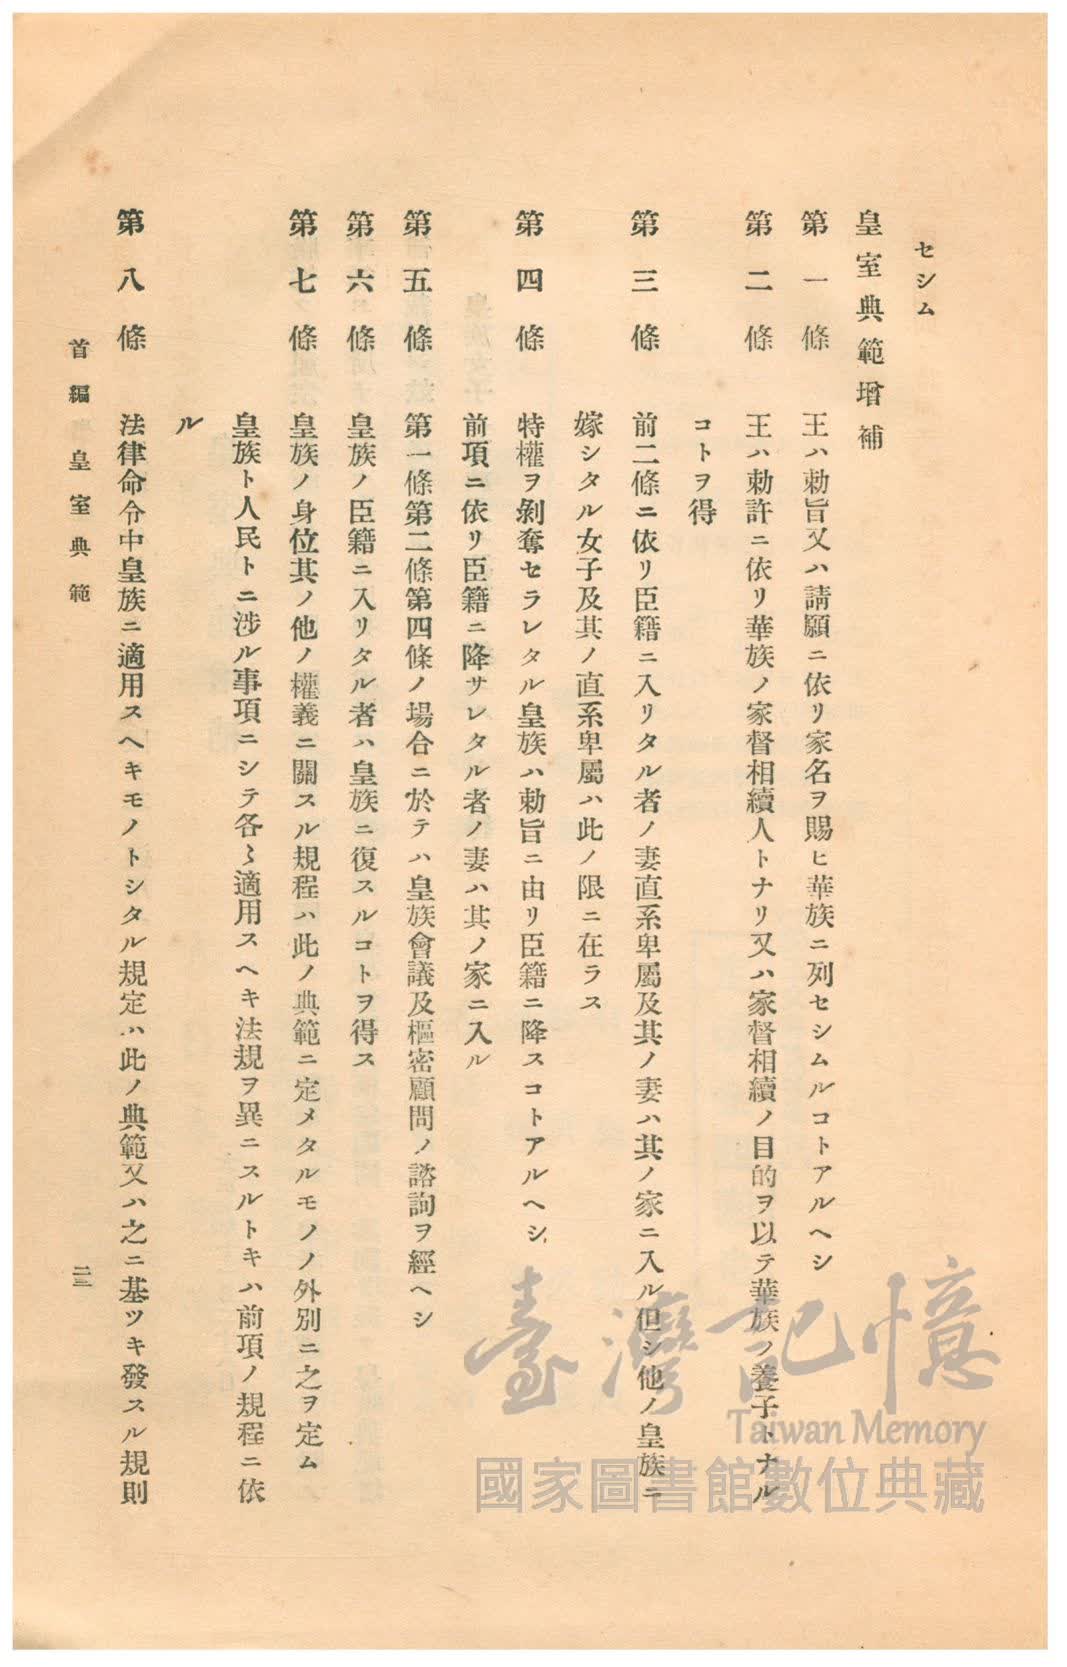 セシム
皇室典範增補
第一條 王ハ勅旨又ハ請願ニ依リ家名ヲ賜ヒ華族ニ列セシムルコトアルヘシ
第二條 王ハ勅許ニ依リ華族ノ家督相續人トナリ又ハ家督相續ノ目的ヲ以テ華族ノ養子トナル
コトヲ得
第三條 前二條ニ依リ臣籍ニ入リタル者ノ妻直系卑屬及其ノ妻ハ其ノ家ニ入ル但シ他ノ皇族ニ
嫁シタル女子及其ノ直系卑屬ハ此ノ限ニ在ラス
第四條 特權ヲ剝奪セラレタル皇族ハ勅旨ニ由リ臣籍ニ降スコトアルヘシ
前項ニ依リ臣籍ニ降サレタル者ノ妻ハ其ノ家ニ入ル
第五條 第一條第二條第四條ノ場合ニ於テハ皇族會議及樞密顧問ノ諮詢ヲ經ヘシ
第六條 皇族ノ臣籍ニ入リタル者ハ皇族ニ復スルコトヲ得ス
第七條 皇族ノ身位其ノ他ノ權義ニ關スル規程ハ此ノ典範ニ定メタルモノノ外別ニ之ヲ定ム
皇族ト人民トニ涉ル事項ニシテ各〻適用スヘキ法規ヲ異ニスルトキハ前項ノ規程ニ依
ル
第八條 法律命令中皇族ニ適用スヘキモノトシタル規定ハ此ノ典範又ハ之ニ基ツキ發スル規則
首編 皇室典範
二三
臺灣記憶
Taiwan Memory
國家圖書館數位典藏